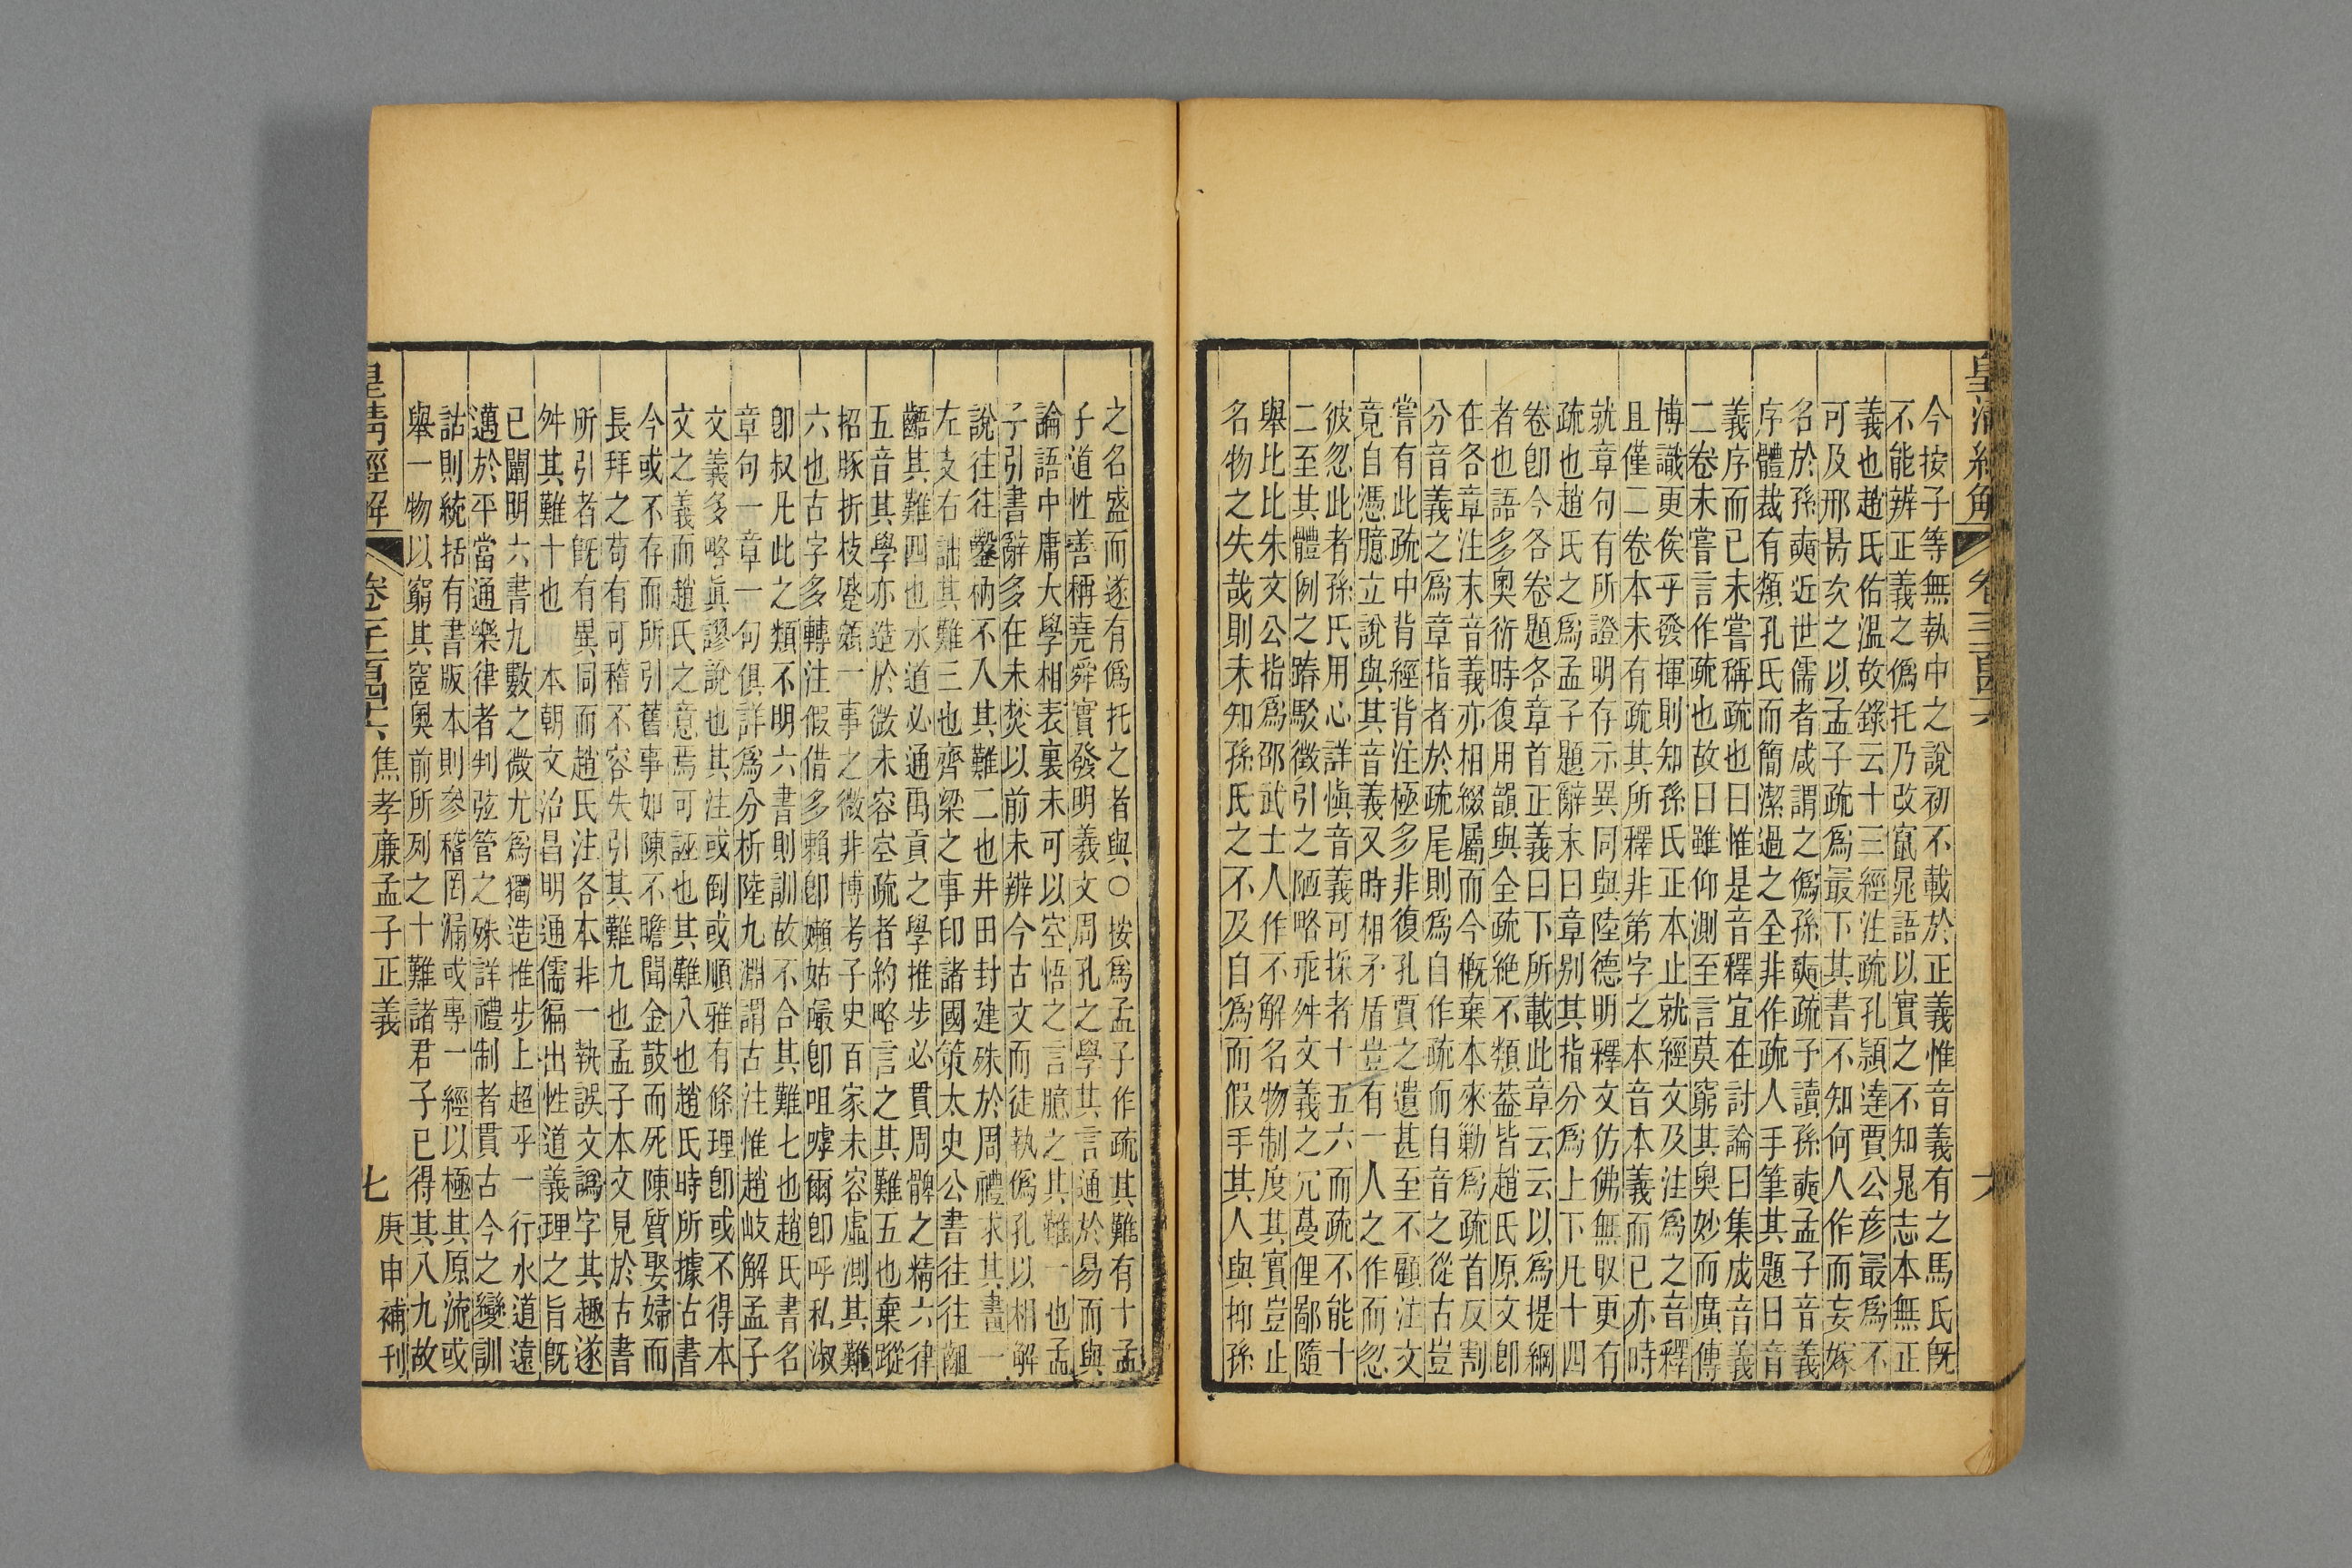 皇清經解
今按子等無執中之說初不載於正義惟音義有之馬氏旣
不能辨正義之僞托乃改竄晁語以實之不知晁志本無正
義也趙氏佑溫故錄云十三經注疏孔穎達賈公彥最爲不
可及邢昺次之以孟子疏爲最下其書不知何人作而妄嫁
名於孫奭近世儒者咸謂之僞孫奭疏予讀孫奭孟子音義
序體裁有類孔氏而簡潔過之全非作疏人手筆其題曰音
義序而已未嘗稱疏也曰惟是音釋宜在討論曰集成音義
二卷未嘗言作疏也故曰雖仰測至言莫窮其奧妙而廣傳
博識更俟乎發揮則知孫氏正本止就經文及注爲之音釋
且僅二卷本未有疏其所釋非第字之本音本義而已亦時
就章句有所證明存示異同與陸德明釋文仿佛無取更有
疏也趙氏之爲孟子題辭末曰章別其指分爲上下凡十四
卷卽今各卷題各章首正義曰下所載此章云云以爲提綱
者也語多奧衍時復用韻與全疏絶不類葢皆趙氏原文卽
在各章注末音義亦相綴屬而今概棄本來勦爲疏首反割
分音義之爲章指者於疏尾則爲自作疏而自音之從古豈
嘗有此疏中背經背注極多非復孔賈之遺甚至不顧注文
竟自憑臆立說與其音義又時相矛盾豈有一人之作而忽
彼忽此者孫氏用心詳愼音義可採者十五六而疏不能十
二至其體例之踳駁徵引之陋略乖舛文義之冗蔓俚鄙隨
舉比比朱文公指爲邵武士人作不解名物制度其實豈止
名物之失哉則未知孫氏之不及自爲而假手其人與抑孫
之名盛而遂有僞托之者與○按爲孟子作疏其難有十孟
子道性善稱堯舜實發明羲文周孔之學其言通於易而與
論語中庸大學相表裏未可以空悟之言臆之其難一也孟
子引書辭多在未焚以前未辨今古文而徒執僞孔以相解
說往往鑿枘不入其難二也井田封建殊於周禮求其畫一
左支右詘其難三也齊梁之事印諸國策太史公書往往齟
齬其難四也水道必通禹貢之學推步必貫周髀之精六律
五音其學亦造於微未容空疏者約略言之其難五也棄蹝
招豚折枝蹙頞一事之微非博考子史百家未容虛測其難
六也古字多轉注假借多賴卽嬾姑嘬卽咀嘑爾卽呼私淑
卽叔凡此之類不明六書則訓故不合其難七也趙氏書名
章句一章一句俱詳爲分析陸九淵謂古注惟趙岐解孟子
文義多略眞謬說也其注或倒或順雅有條理卽或不得本
文之義而趙氏之意焉可誣也其難八也趙氏時所據古書
今或不存而所引舊事如陳不瞻聞金鼓而死陳質娶婦而
長拜之苟有可稽不容失引其難九也孟子本文見於古書
所引者旣有異同而趙氏注各本非一執誤文譌字其趣遂
舛其難十也 本朝文治昌明通儒徧出性道義理之旨旣
已闡明六書九數之微尤爲獨造推步上超乎一行水道遠
邁於平當通樂律者判弦管之殊詳禮制者貫古今之變訓
詁則統括有書版本則參稽罔漏或專一經以極其原流或
舉一物以窮其窔奧前所列之十難諸君子已得其八九故
皇清經解 焦孝廉孟子正義 七 庚申補刊